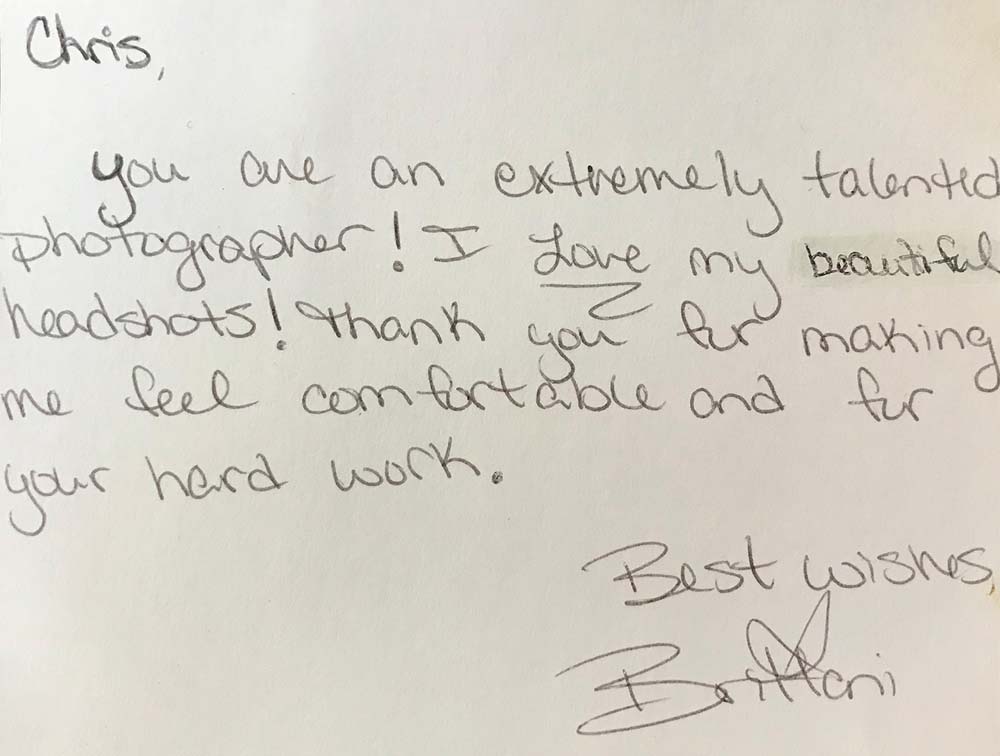 Chris,
you are an extremely talented
photographer! I Love my beautiful
headshots! Thank you for making
me feel comfortable and for
your hard work.
Best wishes,
Brittani